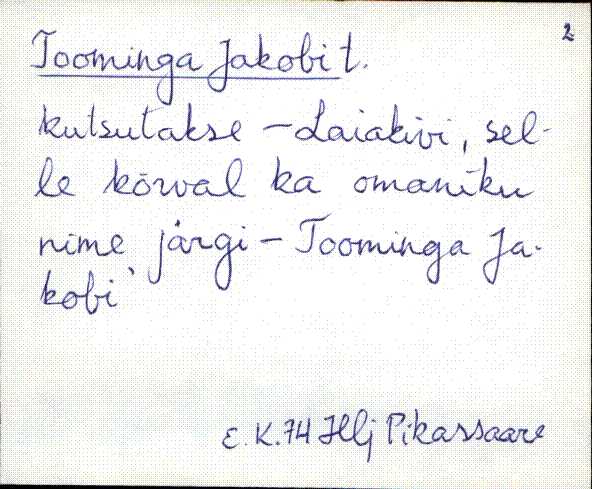 2
Toominga Jakobi t.
kutsutakse – Laiakivi, sel-
le kõrval ka omaniku
nime järgi – Toominga Ja-
kobi
E. K. 74 Hlj Pikassaare